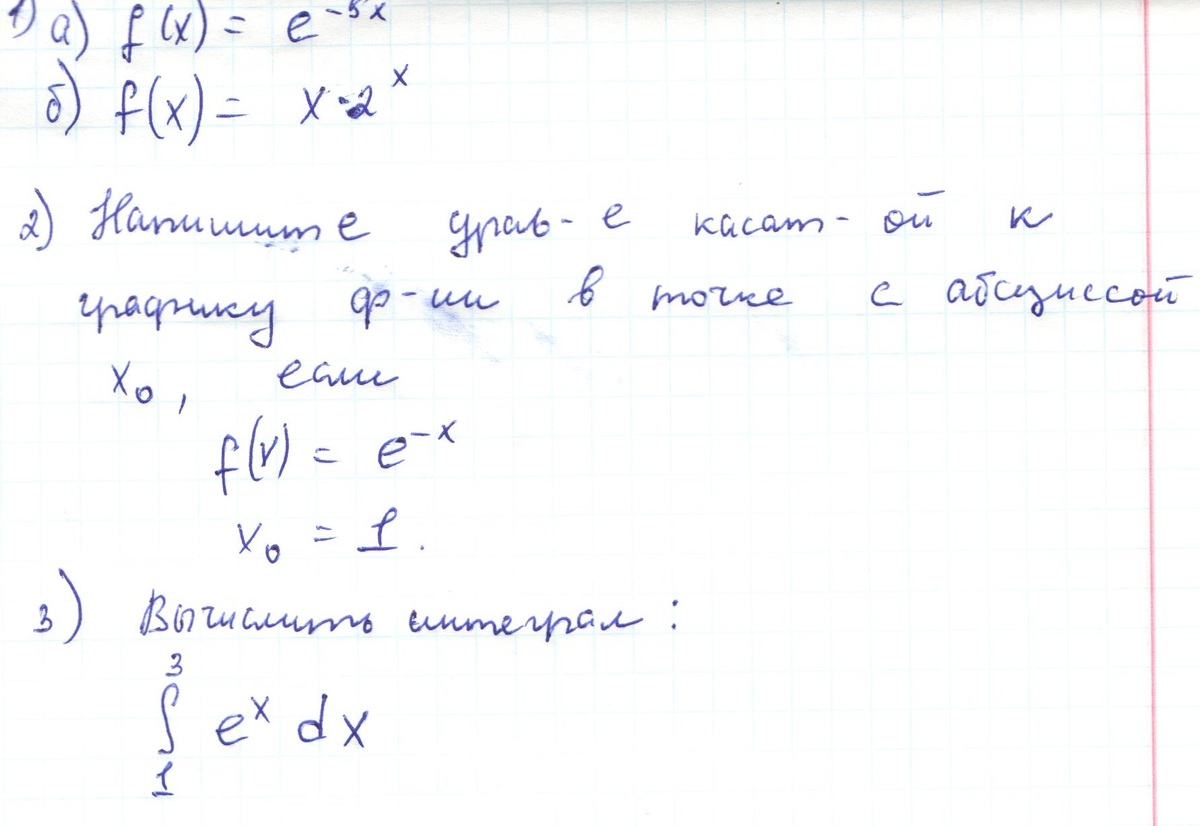 1) а) f(x) = e^{-5x}
б) f(x) = x·2^x
2) Напишите урав-е касат-ой к
графику ф-ии в точке с абсциссой
x₀, если
f(x) = e^{-x}
x₀ = 1.
3) Вычислить интеграл:
∫₁³ e^x dx